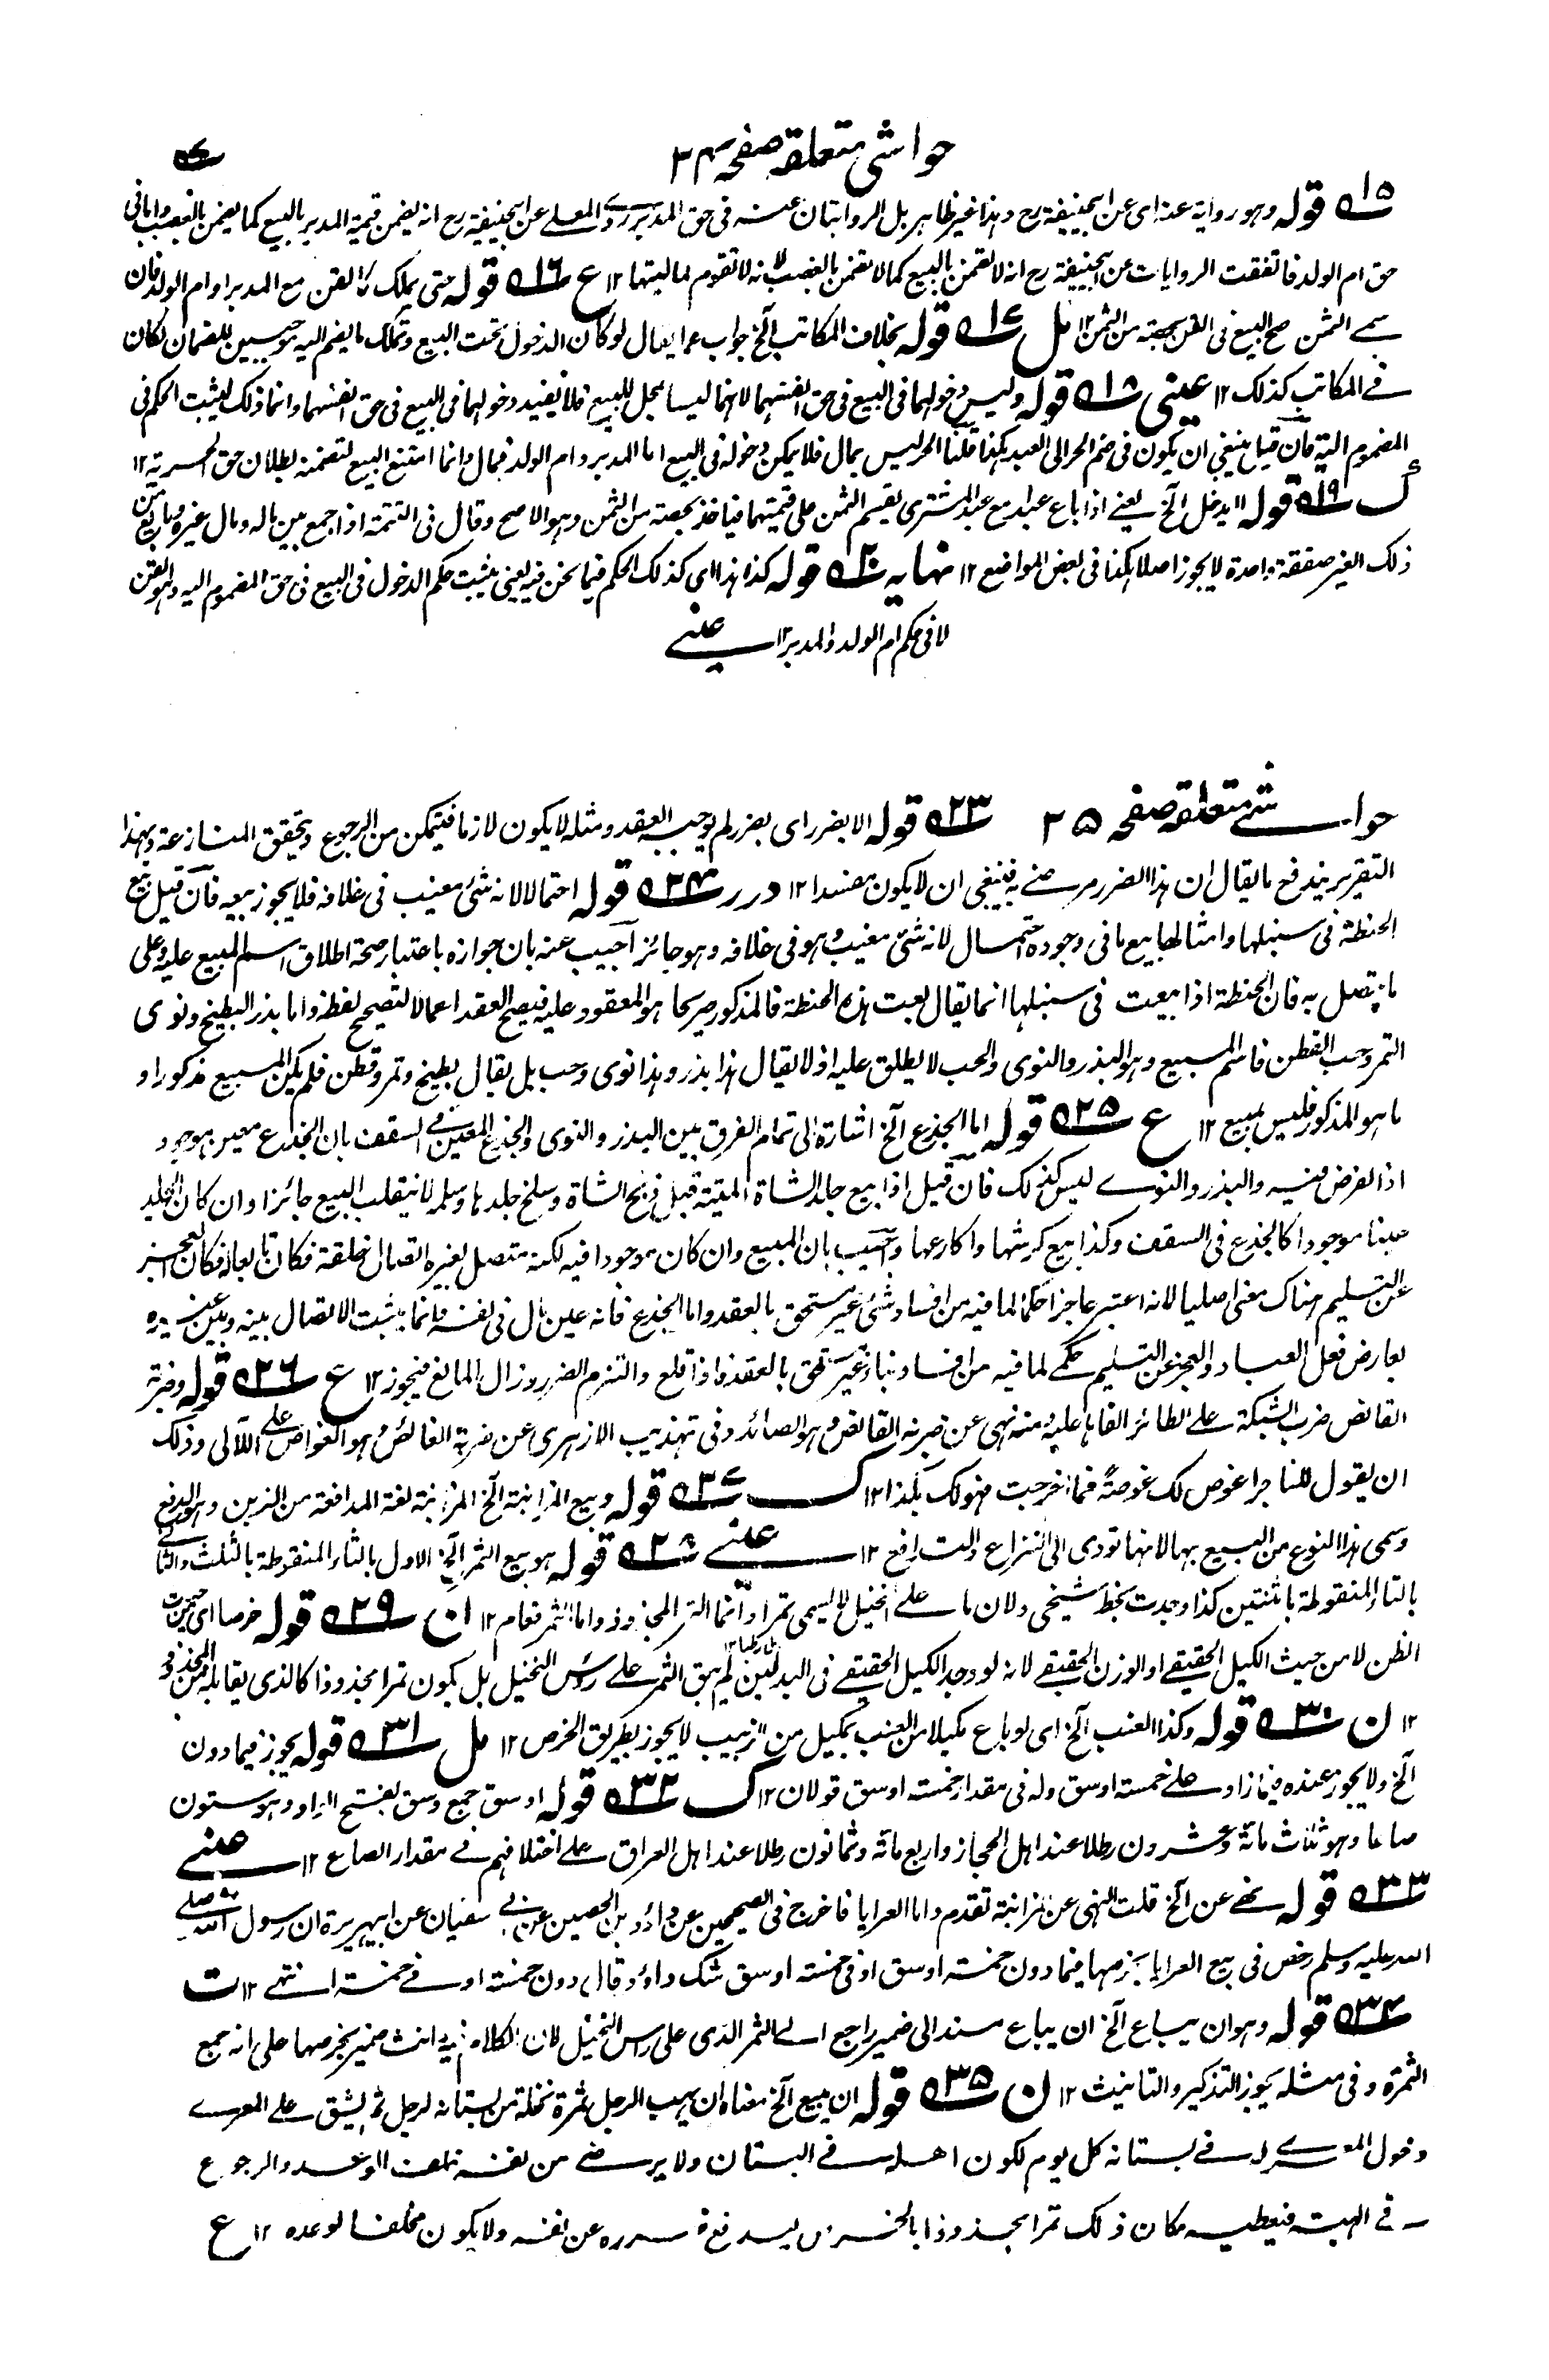 حواشی متعلقہ صفحہ ۳۴
۱۵ قوله وهو رواية عنه اى عن ابيحنيفة رح وهذا غير ظاهر بل الروايتان عنه فى حق المدبر روى المعلى عن ابيحنيفة رح انه يضمن قيمة المدبر بالبيع كما يضمن بالغصب واما فى
حق ام الولد فاتفقت الروايات عن ابيحنيفة رح انه لا تضمن بالبيع كما لا تضمن بالغصب لانه لا تقوم لماليتها ۱۲ ع ۱۶ قوله حتى يملك الخ القن مع المدبر او ام الولد فان
سمى الثمن صح البيع فى القن بحصته من الثمن ۱۲ مل ۱۷ قوله بخلاف المكاتب الخ جواب عما يقال لو كان الدخول تحت البيع وتملك ما يضم اليه موجبين للضمان لكان
فى المكاتب كذلك ۱۲ عينى ۱۸ قوله وليس دخولهما فى البيع فى حق انفسهما لانهما ليسا بمحل للبيع فلا يفيد دخولهما فى البيع فى حق انفسهما وانما ذلك ليثبت الحكم فى
المضموم اليه فان قيل ينبغى ان يكون فى ضم الحر الى العبد هكذا قلنا الحر ليس بمال فلا يمكن دخوله فى البيع اما المدبر وام الولد فمال وانما امتنع البيع لتضمنه بطلان حق الحرية ۱۲
ك ۱۹ قوله لا يدخل الخ يعنى اذا باع عبده مع عبد المشترى يقسم الثمن على قيمتهما فياخذ بحصته من الثمن وهو الاصح وقال فى التتمة اذا جمع بين ماله ومال غيره وباع من
ذلك الغير صفقة واحدة لا يجوز اصلا هكذا فى بعض المواضع ۱۲ نهايه ۲۰ قوله كذا هذا اى كذلك الحكم فيما نحن فيه يعنى يثبت حكم الدخول فى البيع فى حق المضموم اليه وهو القن
لا فى حكم ام الولد والمدبر ۱۲ عينى
حواشی متعلقہ صفحہ ۳۵ ۲۳ قوله الا بضرر اى بضرر لم يوجبه العقد ومثله لا يكون لازما فيتمكن من الرجوع ويتحقق المنازعة وبهذا
التقرير يندفع ما يقال ان هذا الضرر مرضى به فينبغى ان لا يكون مفسدا ۱۲ درر ۲۴ قوله احتمالا لانه شئ مغيب فى غلافه فلا يجوز بيعه فان قيل بيع
الحنطة فى سنبلها وامثالها بيع ما فى وجوده احتمال لانه شئ مغيب وهو فى غلافه وهو جائز اجيب عنه بان جوازه باعتبار صحة اطلاق اسم المبيع عليه وعلى
ما يتصل به فان الحنطة اذا بيعت فى سنبلها انما يقال بعت هذه الحنطة فالمذكور صريحا هو المعقود عليه فيصح العقد اعمالا لتصحيح لفظه واما بذر البطيخ ونوى
التمر وحب القطن فاسم المبيع وهو البذر والنوى والحب لا يطلق عليه اذ لا يقال هذا بذر وهذا نوى وحب بل يقال بطيخ وتمر وقطن فلم يكن المبيع مذكورا و
ما هو المذكور فليس بمبيع ۱۲ ع ۲۵ قوله اما الجذع الخ اشارة الى تمام الفرق بين البذر والنوى والجذع المعين فى السقف بان الجذع معين موجود
اذا الفرض فيه والبذر والنوى ليس كذلك فان قيل اذا بيع جلد الشاة المعينة قبل ذبح الشاة وسلخ جلدها وسلمه لا ينقلب البيع جائزا وان كان الجلد
عينا موجودا كالجذع فى السقف وكذا بيع كرشها واكارعها واجيب بان المبيع وان كان موجودا فيه لكنه متصل بغيره اتصال خلقة فكان تابعا له فكان العجز
عن التسليم هناك معنى اصليا لانه اعتبر عاجزا حكما لما فيه من افساد شئ غير مستحق بالعقد واما الجذع فانه عين مال فى نفسه وانما يثبت الاتصال بينه وبين غيره
بعارض فعل العباد والعجز عن التسليم حكمى لما فيه من افساد بناء غير مستحق بالعقد فاذا قلع والتزم الضرر زال المانع فيجوز ۱۲ ع ۲۶ قوله وضربة
القانص ضرب الشبكة على الطائر القاها عليه ومنه نهى عن ضربة القانص وهو الصائد وفى تهذيب الازهرى عن ضربة الغائص وهو الغواص على اللآلى وذلك
ان يقول للتاجر اغوص لك غوصة فما اخرجت فهو لك بكذا ۱۲ ك ۲۷ قوله وبيع المزابنة الخ المزابنة لغة المدافعة من الزبن وهو الدفع
وسمى هذا النوع من البيع بها لانها تودى الى النزاع والتدافع ۱۲ عينى ۲۸ قوله هو بيع الثمر الخ الاول بالثاء المنقوطة بالثلث والثانى
بالتاء المنقوطة باثنتين كذا وجدت بخط شيخى ولان ما على النخيل لا يسمى تمرا وانما التمر المجذوذ واما الثمر فعام ۱۲ ن ۲۹ قوله خرصا اى من حيث
الظن لا من حيث الكيل الحقيقى او الوزن الحقيقى لانه لو وجد الكيل الحقيقى فى البدلين لم يبق الثمر على رؤس النخيل بل يكون تمرا مجذوذا كالذى يقابله من المجذوذ
۱۲ ن ۳۰ قوله وكذا العنب الخ اى لو باع مكيلا من العنب بمكيل من الزبيب لا يجوز بطريق الخرص ۱۲ مل ۳۱ قوله يجوز فيما دون
الخ ولا يجوز عنده فيما زاد على خمسة اوسق وله فى مقدار خمسة اوسق قولان ۱۲ ك ۳۲ قوله اوسق جمع وسق بفتح الواو وهو ستون
صاعا وهو ثلاث مائة وعشرون رطلا عند اهل الحجاز واربع مائة وثمانون رطلا عند اهل العراق على اختلافهم فى مقدار الصاع ۱۲ عينى
۳۳ قوله نهى عن الخ قلت النهى عن المزابنة تقدم واما العرايا فاخرج فى الصحيحين عن داؤد بن الحصين عن ابى سفيان عن ابيهريرة ان رسول الله صلى
الله عليه وسلم رخص فى بيع العرايا بخرصها فيما دون خمسة اوسق او فى خمسة اوسق شك داؤد قال دون خمسة او فى خمسة انتهى ۱۲ ت
۳۴ قوله وهو ان يباع الخ ان يباع مسند الى ضمير راجع الى الثمر الذى على راس النخيل لان الكلام فيه انث ضمير بخرصها على انه جمع
الثمرة وفى مثله يجوز التذكير والتانيث ۱۲ ن ۳۵ قوله ان يبيع الخ معناه ان يهب الرجل ثمرة نخلة من بستانه لرجل ثم يشق على المعرى
دخول المعرى له فى بستانه كل يوم لكون اهله فى البستان ولا يرضى من نفسه خلف الوعد والرجوع
فى الهبة فيعطيه مكان ذلك تمرا مجذوذا بالخرص ليدفع ضرره عن نفسه ولا يكون مخلفا لوعده ۱۲ ع